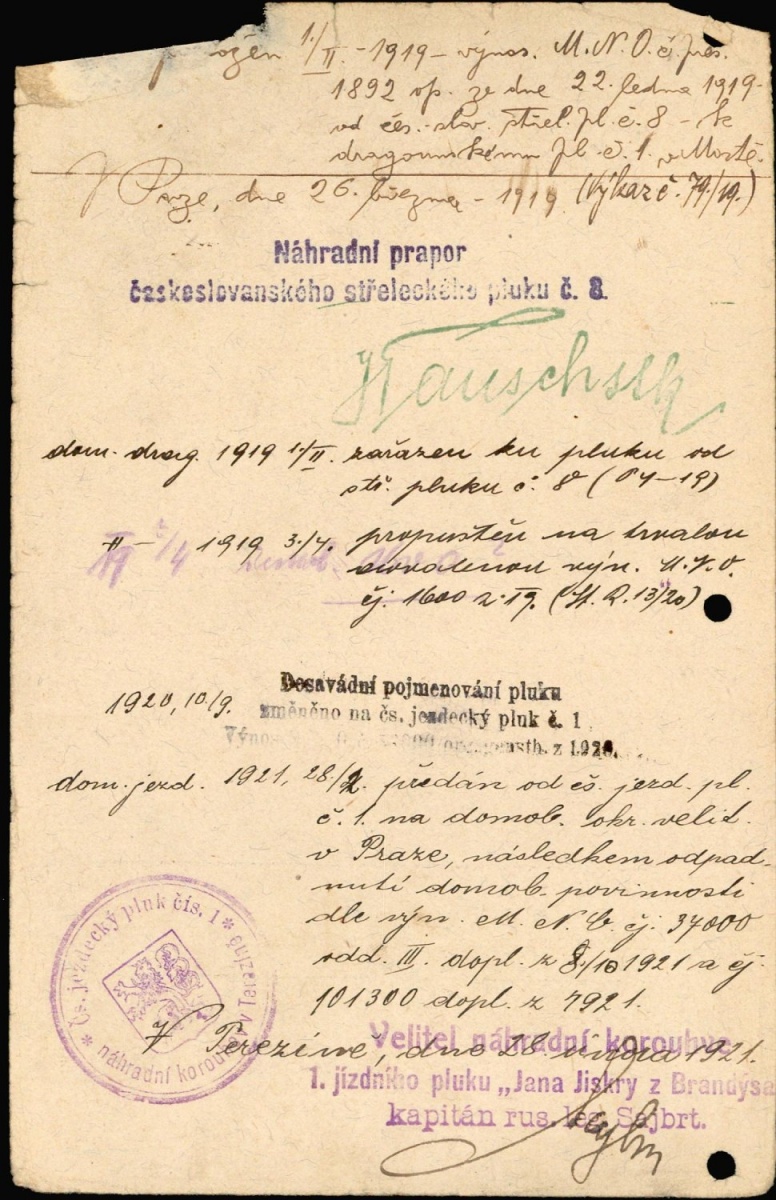 1./II. - 1919 - výnos. M.N.O. č. pres.
1892 op. ze dne 22. ledna 1919
od čes.-slov. střel. pl. č. 8 - k
dragounskému pl. č. 1. v Mostě.
V Praze, dne 26. března - 1919 (Výkaz č. 79/19.)
Náhradní prapor
českoslovanského střeleckého pluku č. 8.
dom. drag. 1919 1./II. zařazen ku pluku od
stř. pluku č. 8 (P4-19)
-"- 1919 3./4. propuštěn na trvalou
dovolenou výn.
čj. 1600 z 19. (13/20)
1920, 10/9. Dosavádní pojmenování pluku
změněno na čs. jezdecký pluk č. 1
z 1920.
dom. jezd. 1921, 28./2. předán od čs. jezd. pl.
č. 1. na domob. okr. velit.
v Praze, následkem odpad-
nutí domob. povinnosti
dle výn. M.N.O. čj. 37000
odd. III. dopl. z 8./10 1921 a čj.
101300 dopl. z 1921.
* Čs. jezdecký pluk čís. 1 * náhradní korouhev v Terezíně
V Terezíně, dne 28. února 1921.
Velitel náhradní korouhve
1. jízdního pluku „Jana Jiskry z Brandýsa
kapitán rus. leg. Sajbrt.
Sajbrt